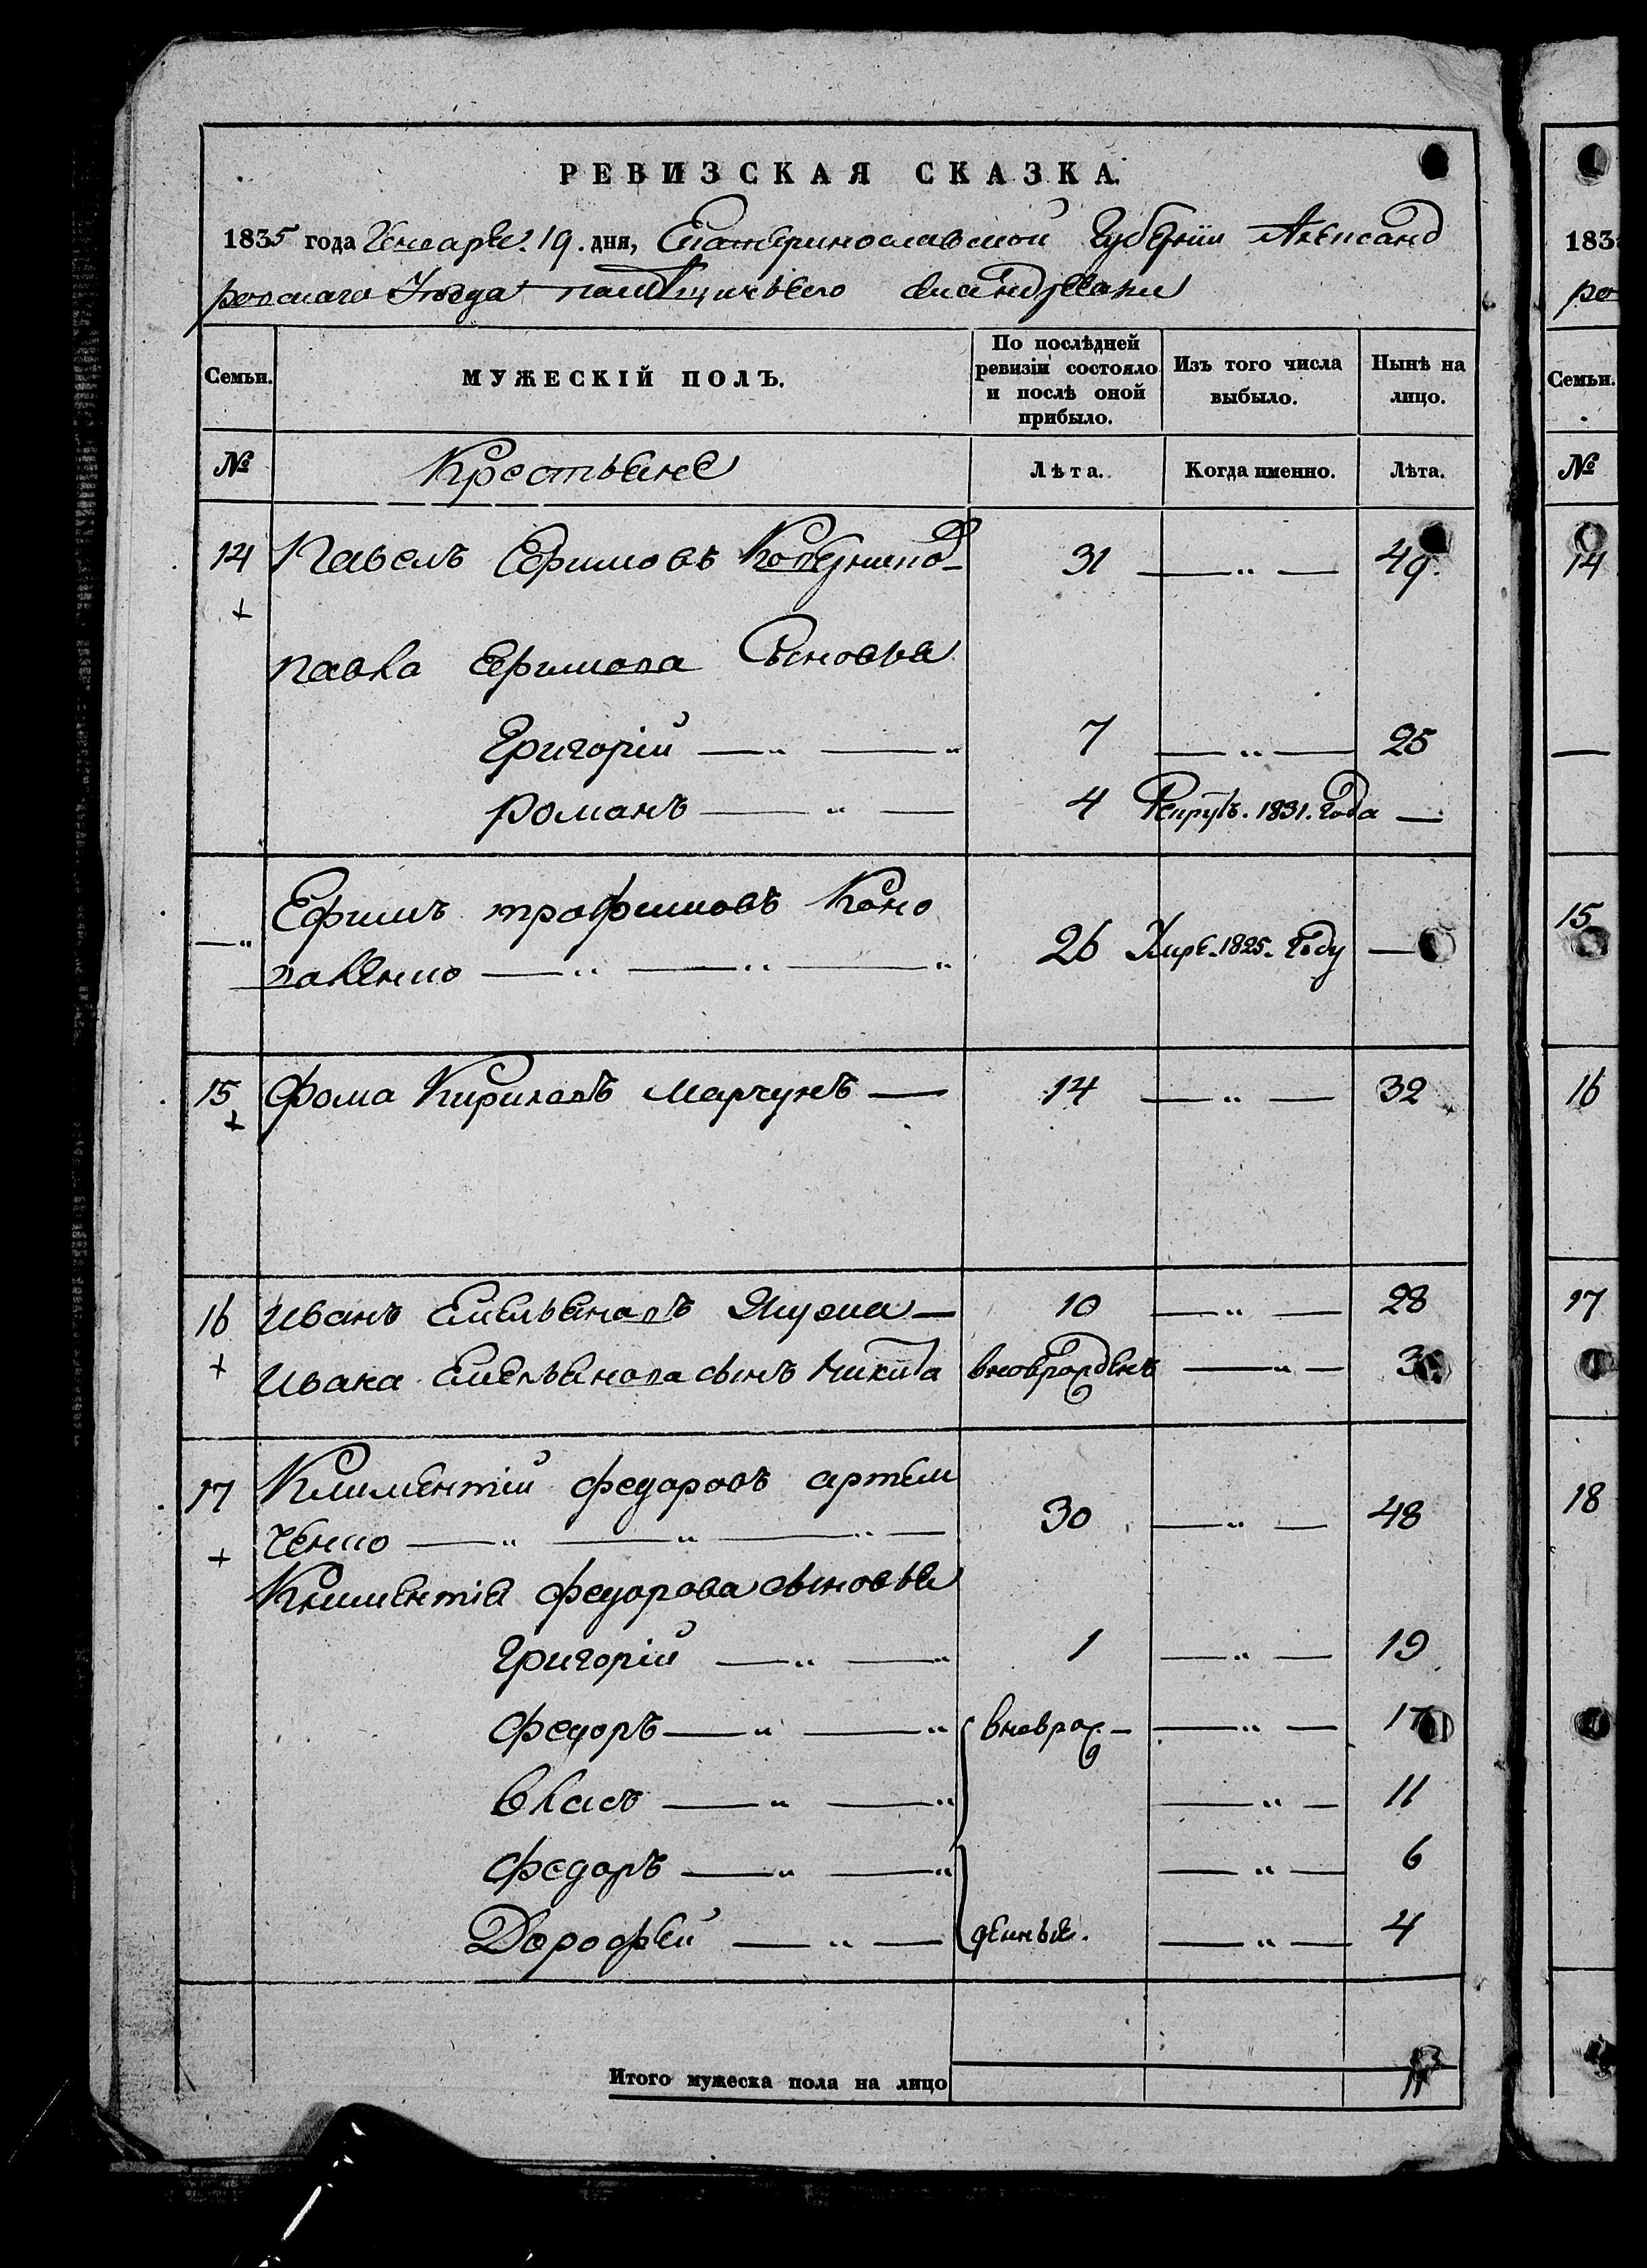 РЕВИЗСКАЯ СКАЗКА.
1835 года Генваря. 19. дня, Екатеринославской Губернии Александ
ровскаго Уѣзда
Семьи. МУЖЕСКІЙ ПОЛЪ. По послѣдней ревизіи состояло и послѣ оной прибыло. Изъ того числа выбыло. Нынѣ на лицо.
№ Крестьяне Лѣта. Когда именно. Лѣта.
14 Павелъ Ефимовъ 31 —„— 49.
+
Павла Ефимова Сыновья
Григорій —„ —„ 7 —„— 25
Романъ —„— 4 Рекрутъ. 1831. Года —
Ефимъ трофимовъ Коно
—„ валенко —„ —„ —„ 26 Умре. 1825. Году —
15 Фома Кириловъ Марчукъ — 14 —„— 32
+
16 Иванъ Емельяновъ — 10 —„— 28
+ Ивана Емельянова сынъ Никита вноврожденъ —„— 3
17 Климентій федоровъ артем
+ ченко —„ —„ —„— 30 —„— 48
Климентія федорова сыновья
Григорій —„ —„ 1 —„— 19
федоръ —„ —„ вноврож— —„— 17
Власъ —„ —„ —„— 11
федоръ —„ —„ —„— 6
Дорофей —„— денные. —„— 4
Итого мужеска пола на лицо
183
ро
Семьи.
№
14
—
15
16
17
18